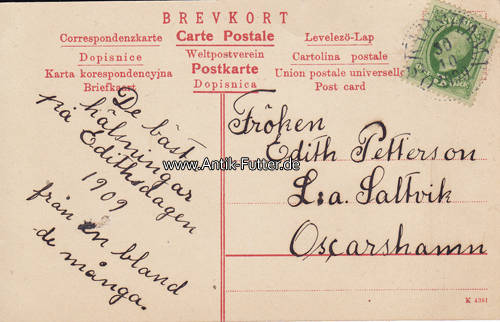 BREVKORT
Correspondenzkarte Carte Postale Levelező-Lap
Dopisnice Weltpostverein Cartolina postale
Karta korespondencyjna Postkarte Union postale universelle
Briefkaart Dopisnica Post card
De bäst
hälsningar
på Edithsdagen
1909
från en bland
de många.
www.Antik-Futter.de
Fröken
Edith Petterson
L:a Saltvik
Oscarshamn
K 4361